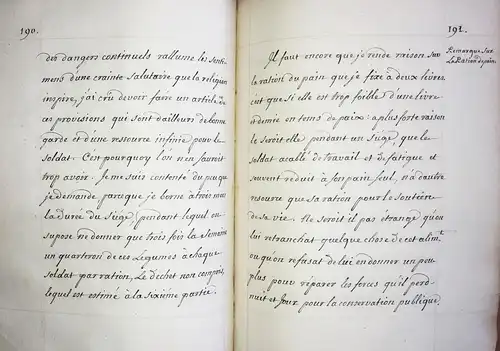 190.
des dangers continuels rallume les senti-
mens d'une crainte salutaire que la religion
inspire, j'ai cru devoir faire un article de
ces provisions qui sont dailleurs de bonne
garde et d'une ressource infinie pour le
soldat. C'est pourquoy l'on n'en sauroit
trop avoir. Je me suis contenté du peu que
je demande, parceque je borne à trois mois
la durée du Siège, pendant lequel on
supose ne donner que trois fois la Semaine
un quarteron de ces Légumes a chaque
soldat par ration, Le dechet non compris,
lequel est estimé a la Sixiême partie.
191.
Remarque sur
La Ration de pain.
Il faut encore que je rende raison sur
la ration du pain que je fixe a deux livres
c'est que si elle est trop foible d'une livre
et demie en tems de paix: a plus forte raison
le seroit elle pendant un Siége, que le
soldat acablé de travail et de fatigue et
souvent réduit à son pain seul, n'a d'autre
resource que sa ration pour le soutien
de sa vie. Ne seroit il pas étrange qu'on
lui retranchat quelque chose de cet alimt.
ou qu'on refusat de lui en donner un peu
plus pour réparer les forces qu'il perd
nuit et Jour pour la conservation publique.